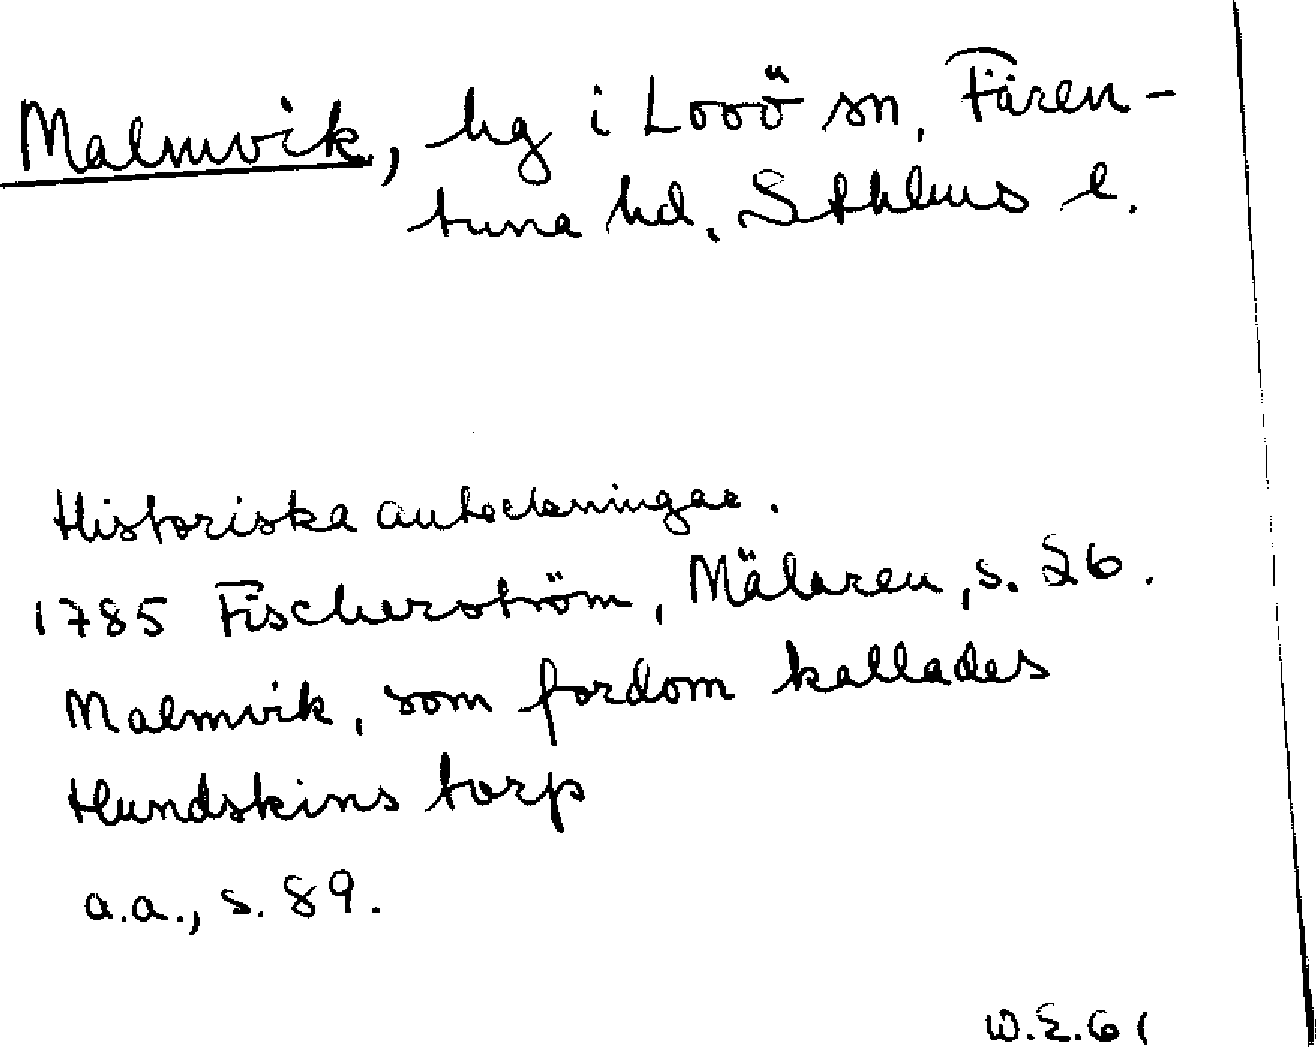 Malmvik, hg i Lovö sn, Fären-
tuna hd, Sthlms l.
Historiska anteckningar.
1785 Fischerström, Mälaren, s. 26.
Malmvik, som fordom kallades
Hundskins torp
a.a., s. 89.
W.E.61